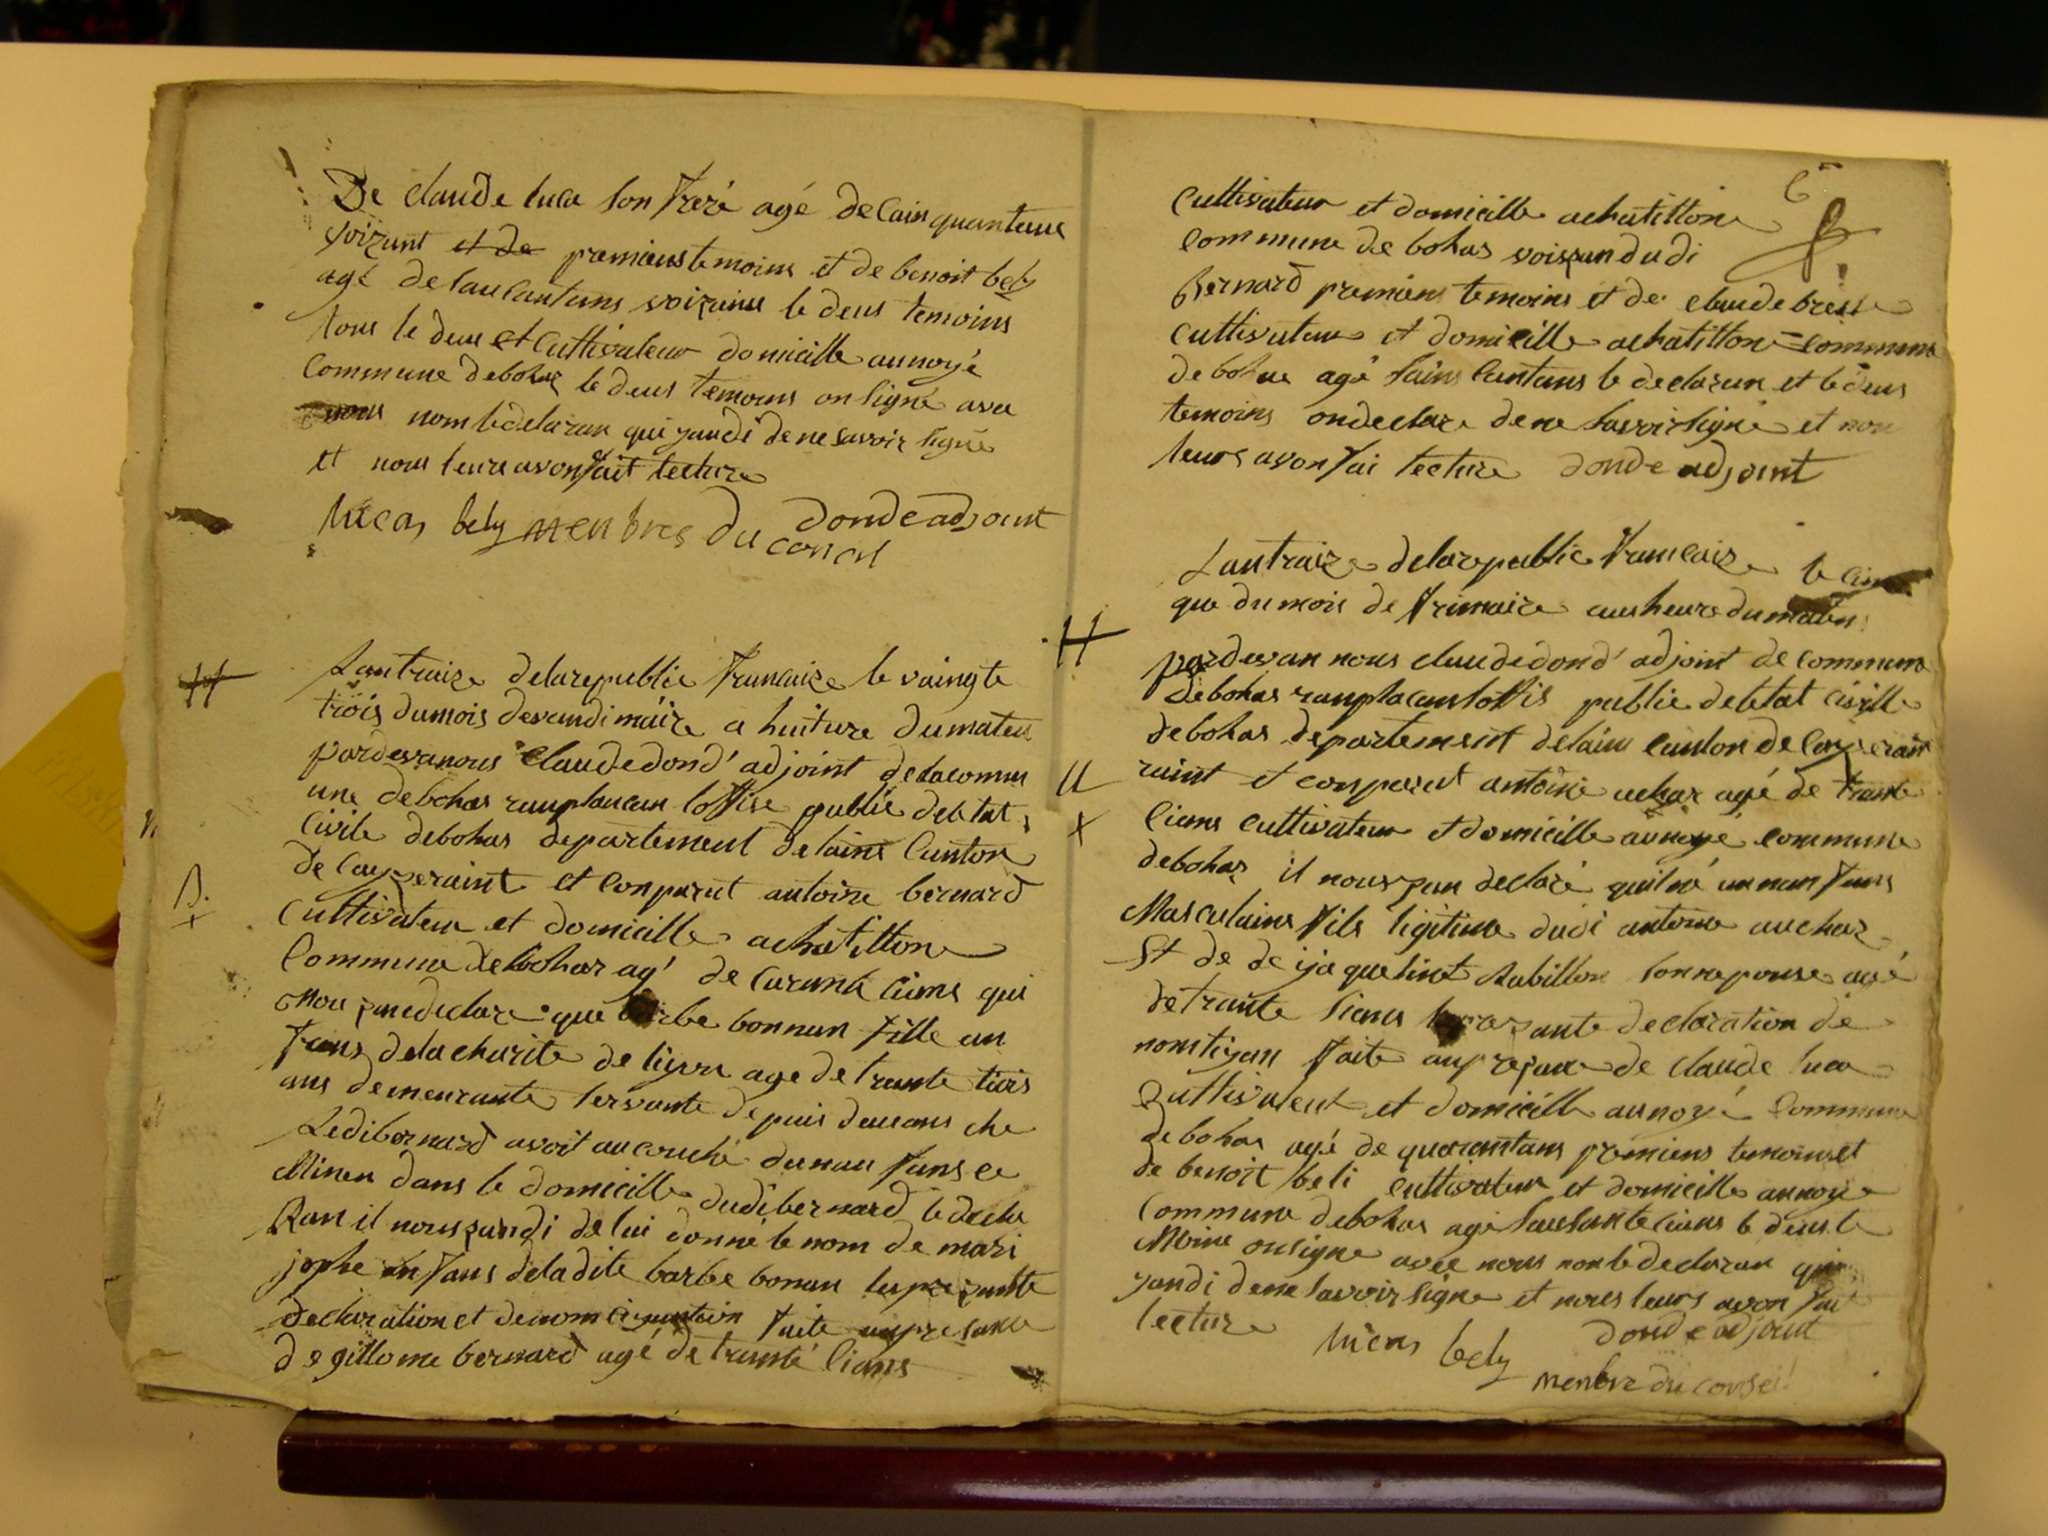 De Claude luca son frere agé de Cainquanteans
voizant et de premiens temoins et de benoit bely
agé de sauCantans voizains le deus temoins
tous le deus et Cultivateur domicille aunoyé
Commune debohas le deus temoins on signé avec
nous nom le delaran qui yandi de ne savoir signé
et nous leurs avon fait lecture
lucas bely menbres du dondeadjoint
concil
Lantraize delarepublic francaize le vaingte
trois dumois devandimaire a huiture dumaten
pardevanous Claudedond adjoint delacommu
une debohas ranplaucan loffise public debtat
Civile debohas departement delains Canton
de Cayzeraint et Conparut antoine bernard
Cultivateur et domicille achatillone
Commune debohas agé de Caranta Cians qui
nou pandeclare que barbe bonnan fille an
fans delacharite de liyon age de trante trois
ans demeurante servante depuis deueans che
Ledibernard avoit aucouché dunau fans ce
Minen dans le domicille dudibernard le decla
Ran il nouszandi de lui donné le nom de mari
jophe anfans deladite barbe bonan lesprezante
declaration et denomination faite aupresance
de gillome bernard agé de tranté Cians
Cultivateur et domicille achatillone
Commune de bohas voiszan dudi
Bernard premiens temoins et de claude
Cultivateur et domicille achatillone = Commune
de bohas agé sains Cantans le declaran et le deus
temoins ondeclare de ne savoir signé et nou
leurs avon fai lecture donde adjoint
Lantraize delarepublic francaize le Cin
que dumois de frimaire aus heure du maten
pardevan nous claudedond adjoint de Commune
debohas ranplacan loffis public debtat Civille
debohas departement delain Canton de Cayzerain
raint et conparut antoine achar agé de trante
Cians Cultivateur et domicille aunoyé commune
debohas il nouszan declaré quilné un nan fans
Masculains fils ligitime dudi antoine auchar
Et de de ijaquelinet Rabillon sonnepouse agé
detrante Sians prezante declaration de
nomtizan faite aupresance de claude luca
Cultivateur et domicille aunoyé Commune
debohas agé de quarantans premiens temoins et
de benoit beli Cultivateur et domicille aunoye
Commune debohas agé sausante Cians le deus te
Moins onsigne avec nous nom le declaran qui
yandi dene savoir signe et nous leurs avon fait
lecture lucas bely donde adjoint
menbre du conseil